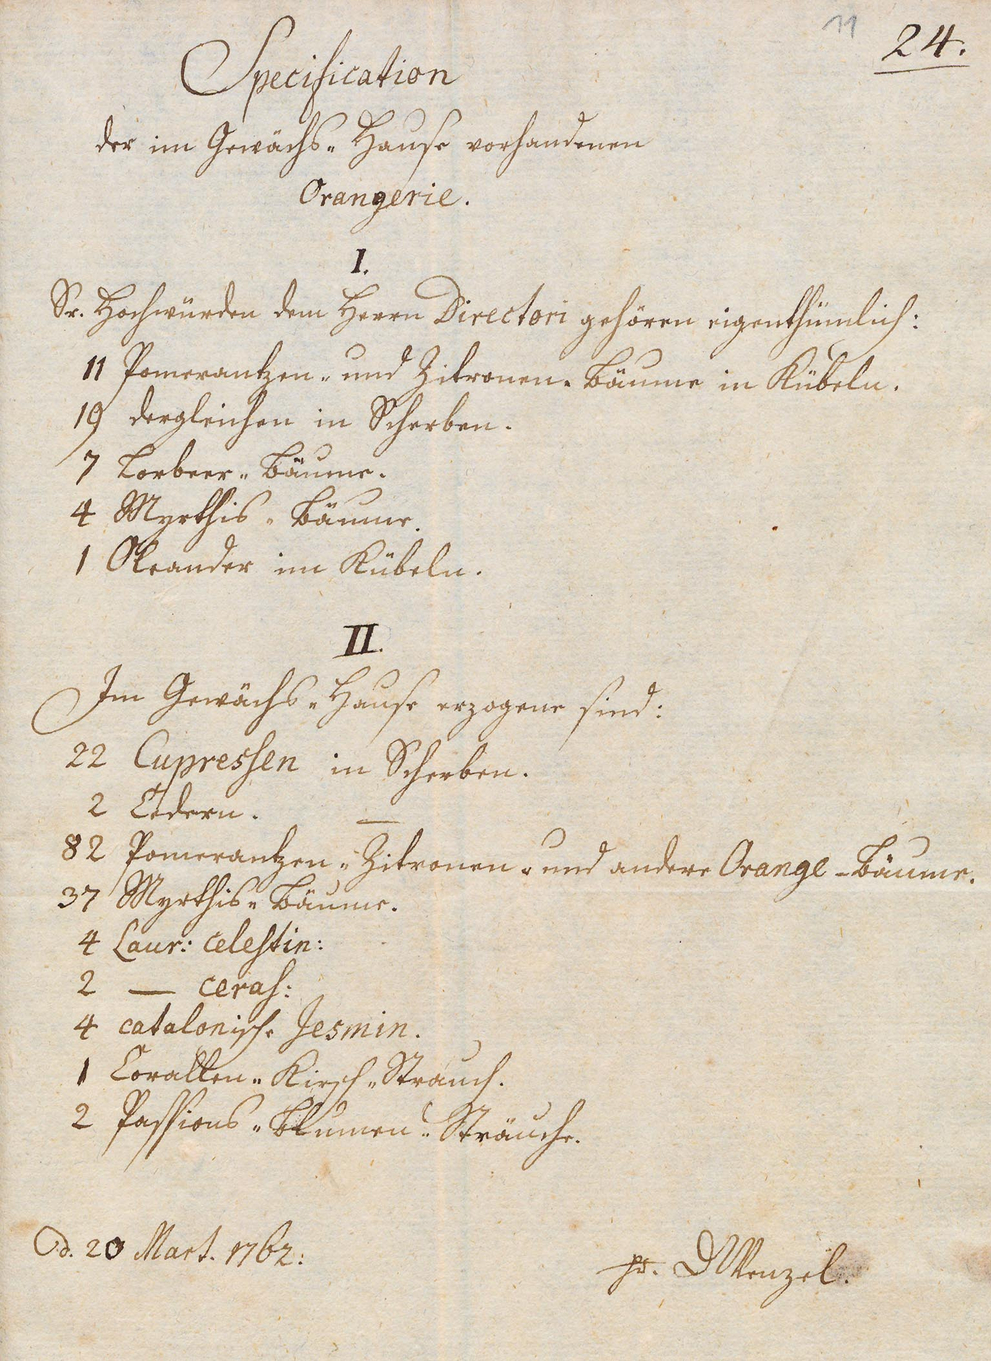 11
24.
Specification
der im Gewächs-Hause vorhandenen
Orangerie.
I.
Sr. Hochwürden dem Herrn Directori gehören eigenthümlich:
11 Pomerantzen- und Zitronen-Bäume in Kübeln.
19 dergleichen in Scherben.
7 Lorbeer-Bäume.
4 Myrthis-Bäume.
1 Oleander im Kübeln.
II.
Im Gewächs-Hause erzogene sind:
22 Cupressen in Scherben.
2 Cedern. —
82 Pomerantzen-Zitronen-und andere Orange-Bäume.
37 Myrthis-Bäume.
4 Laur: celestin:
2 — ceras:
4 catalonische Jesmin.
1 Corallen-Kirsch-Strauch.
2 Passions-Blumen-Sträuche.
d. 20 Mart. 1762:
Wenzel.